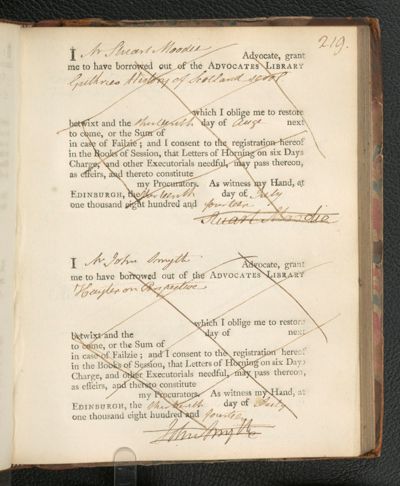 219.
I Mr Stuart Moodie Advocate, grant
me to have borrowed out of the ADVOCATES LIBRARY
Guthries History of Scotland
which I oblige me to restore
betwixt and the thirteenth day of Augt next
to come, or the Sum of
in case of Failzie; and I consent to the registration hereof
in the Books of Session, that Letters of Horning on six Days
Charge, and other Executorials needful, may pass thereon,
as effeirs, and thereto constitute
my Procurators. As witness my Hand, at
EDINBURGH, the thirteenth day of July
one thousand eight hundred and fourteen
Stuart Moodie
I Mr John Smyth Advocate, grant
me to have borrowed out of the ADVOCATES LIBRARY
Hayter on Perspective
which I oblige me to restore
betwixt and the day of next
to come, or the Sum of
in case of Failzie; and I consent to the registration hereof
in the Books of Session, that Letters of Horning on six Days
Charge, and other Executorials needful, may pass thereon,
as effeirs, and thereto constitute
my Procurators. As witness my Hand, at
EDINBURGH, the thirteenth day of July
one thousand eight hundred and fourteen
John Smyth